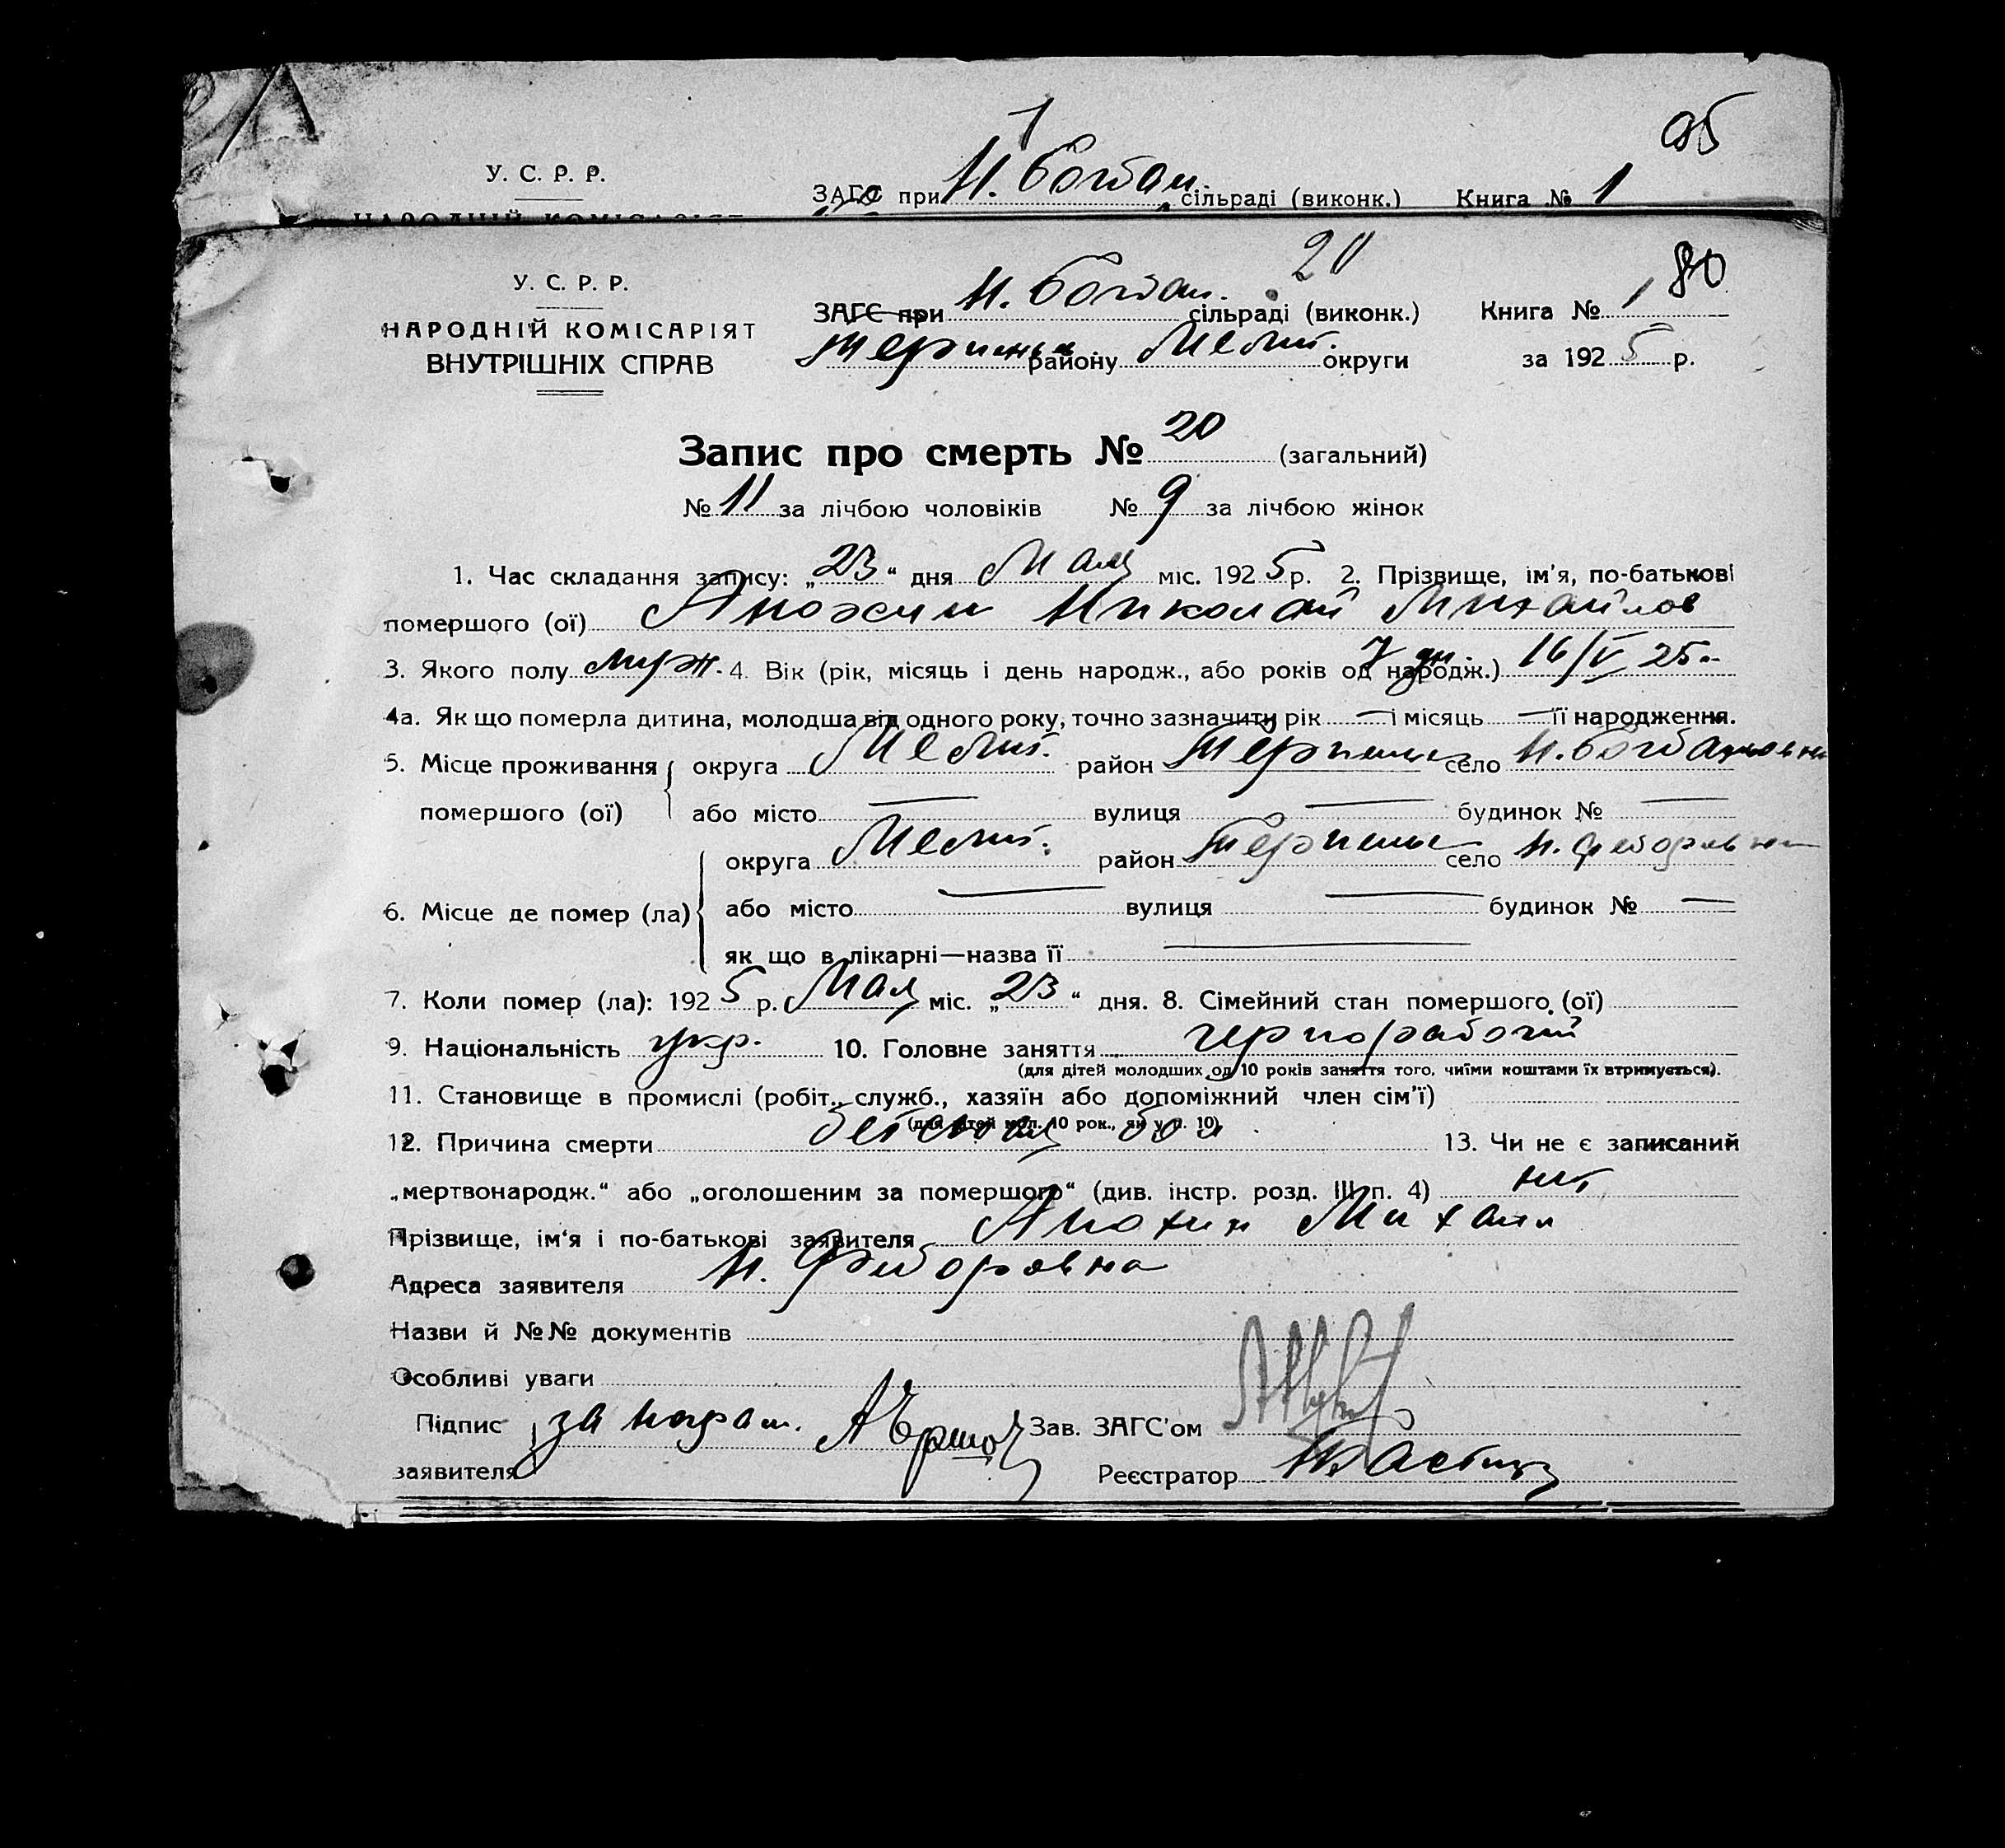 1
95
У. С. Р. Р.
ЗАГС при Н. Богдан. сільраді (виконк.) Книга № 1
НАРОДНІЙ КОМІСАРІЯТ
20
80
У. С. Р. Р.
ЗАГС при Н. Богдан. сільраді (виконк.) Книга № 1
НАРОДНІЙ КОМІСАРІЯТ
ВНУТРІШНІХ СПРАВ
Терпеньи. району Мелит. округи за 1925 р.
Запис про смерть № 20 (загальний)
№ 11 за лічбою чоловіків № 9 за лічбою жінок
1. Час складання запису: „23“ дня Мая міс. 1925 р. 2. Прізвище, ім'я, по-батькові
помершого (ої) Анохин Николай Михайлов
3. Якого полу муж. 4. Вік (рік, місяць і день народж., або років од народж.) 7 дн. 16/V 25
4а. Як що померла дитина, молодша від одного року, точно зазначити рік — і місяць — її народження.
5. Місце проживання округа Мелит. район Терпень село Н. Богдановка
помершого (ої) або місто — вулиця — будинок № —
округа Мелит. район Терпень село Н. Федоровка
6. Місце де помер (ла) або місто — вулиця — будинок № —
як що в лікарні—назва її —
7. Коли помер (ла): 1925 р. Мая міс. „23“ дня. 8. Сімейний стан помершого (ої)
9. Національність укр. 10. Головне заняття чернорабочий
(для дітей молодших од 10 років заняття того, чиїми коштами їх втримується).
11. Становище в промислі (робіт., служб., хазяїн або допоміжний член сім'ї)
(для дітей мол. 10 рок., як у п. 10)
12. Причина смерти детская бол. 13. Чи не є записаний
„мертвонародж.“ або „оголошеним за помершого“ (див. інстр. розд. III п. 4) нит
Прізвище, ім'я і по-батькові заявителя Анохин Михаил
Адреса заявителя Н. Федоровка
Назви й №№ документів
Особливі уваги
Підпис за неграм. АЕршов Зав. ЗАГС'ом
заявителя Реєстратор